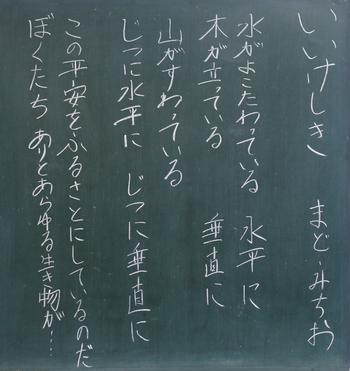 いいけしき　まど・みちお
水がよこたわっている　水平に
木が立っている　垂直に
山がすわっている
じつに水平に　じつに垂直に
この平安をふるさとにしているのだ
ぼくたち　ありとあらゆる生き物が…